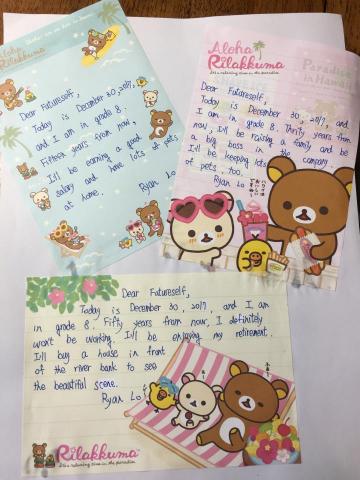 Aloha
Rilakkuma
Dear Futureself,
Today is December 30, 2017,
and I am in grade 8.
Fifteen years from now,
I'll be earning a good
salary and have lots of pets
at home.
Ryan Lo
Aloha
Rilakkuma
It's a relaxing time in the paradise.
Paradise
in Hawaii
Dear Futureself,
Today is December 30, 2017,
and I am in grade 8. Thrity years from
now, I'll be raising a family and be
a big boss in the company.
I'll be keeping lots
of pets, too.
Ryan Lo
Dear Futureself,
Today is December 30, 2017, and I am
in grade 8. Fifty years from now, I definitely
won't be working. I'll be enjoying my retirement.
I'll buy a house in front
of the river bank to see
the beautiful scene.
Ryan Lo
Rilakkuma
It's a relaxing time in the paradise.